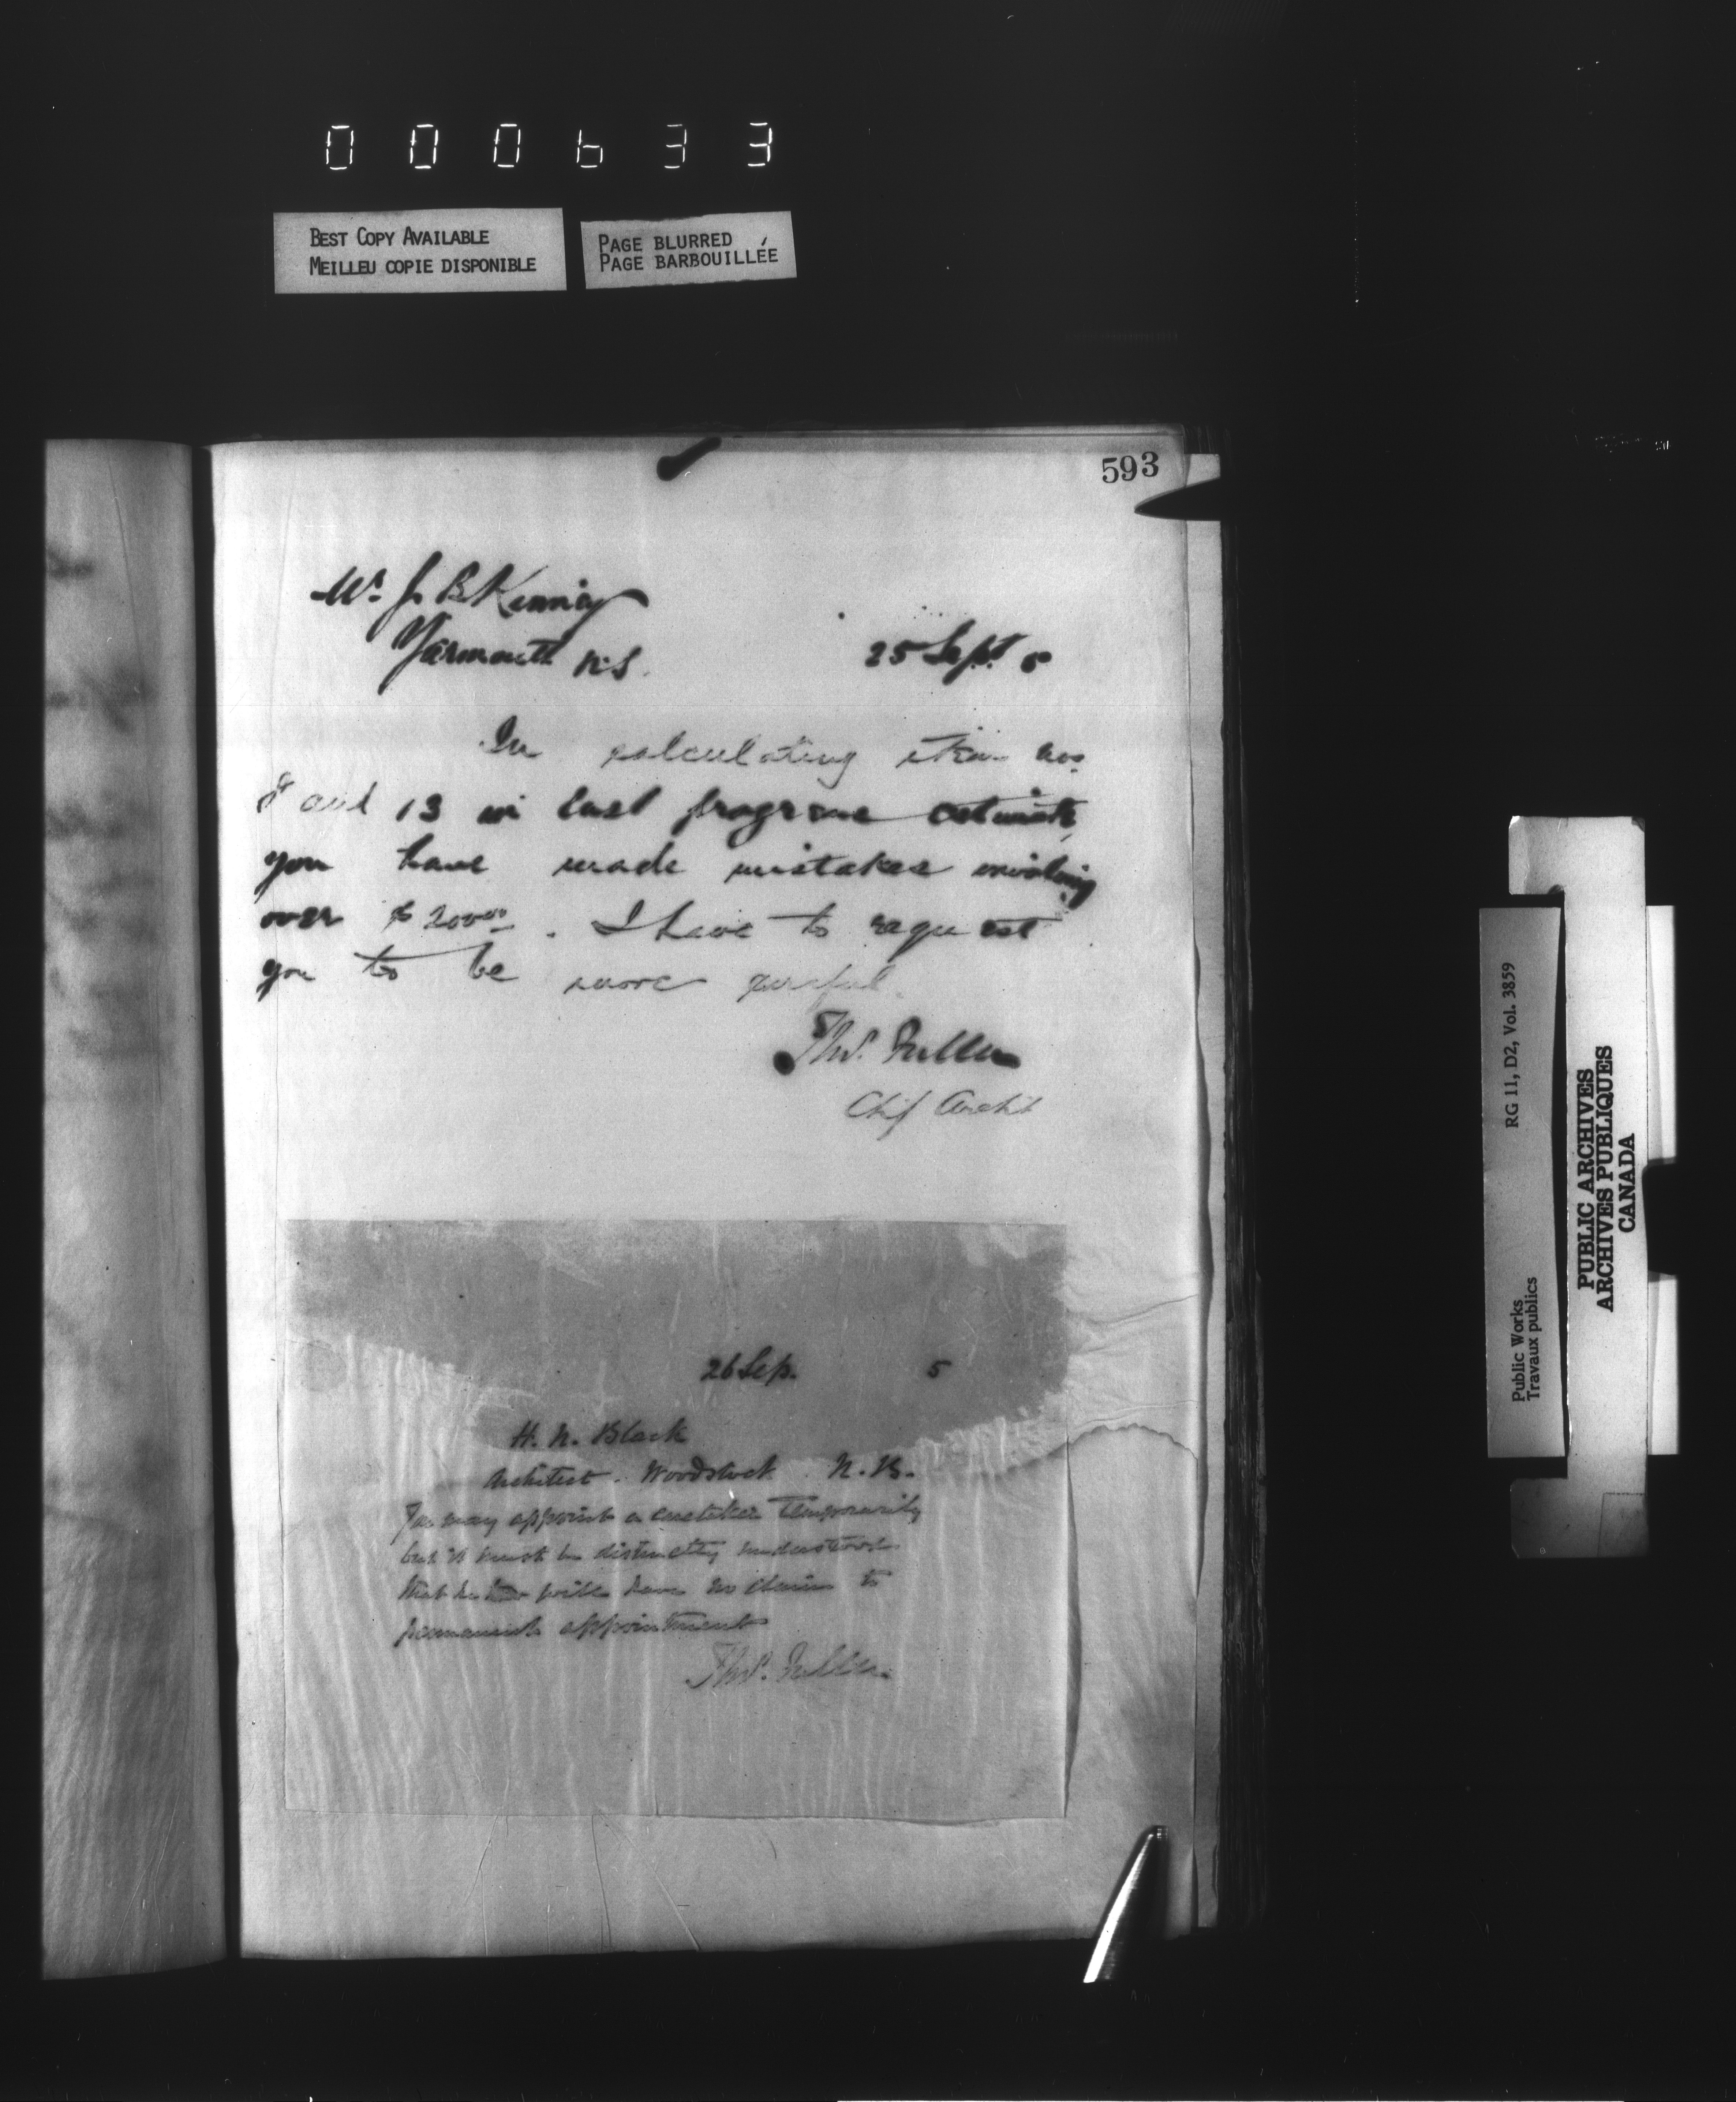 000633
BEST COPY AVAILABLE
MEILLEU COPIE DISPONIBLE
PAGE BLURRED
PAGE BARBOUILLÉE
593
Mr. J. B Kenny
Yarmouth N.S.
25 Sept. 5
In calculating item nos
and 13 in last progress estimate
you have made mistakes involving
over $ 200.00. I have to request
you to be more careful.
Thos. Fuller
Chif Archt
26 Sep. 5
H. N. Black
Architect. Woodstock N.B.
You may appoint a caretaker temporarily
but it must be distinctly understood
that he will have no claim to
permanent appointment
Thos. Fuller
Public Works
Travaux publics
RG 11, D2, Vol. 3859
PUBLIC ARCHIVES
ARCHIVES PUBLIQUES
CANADA